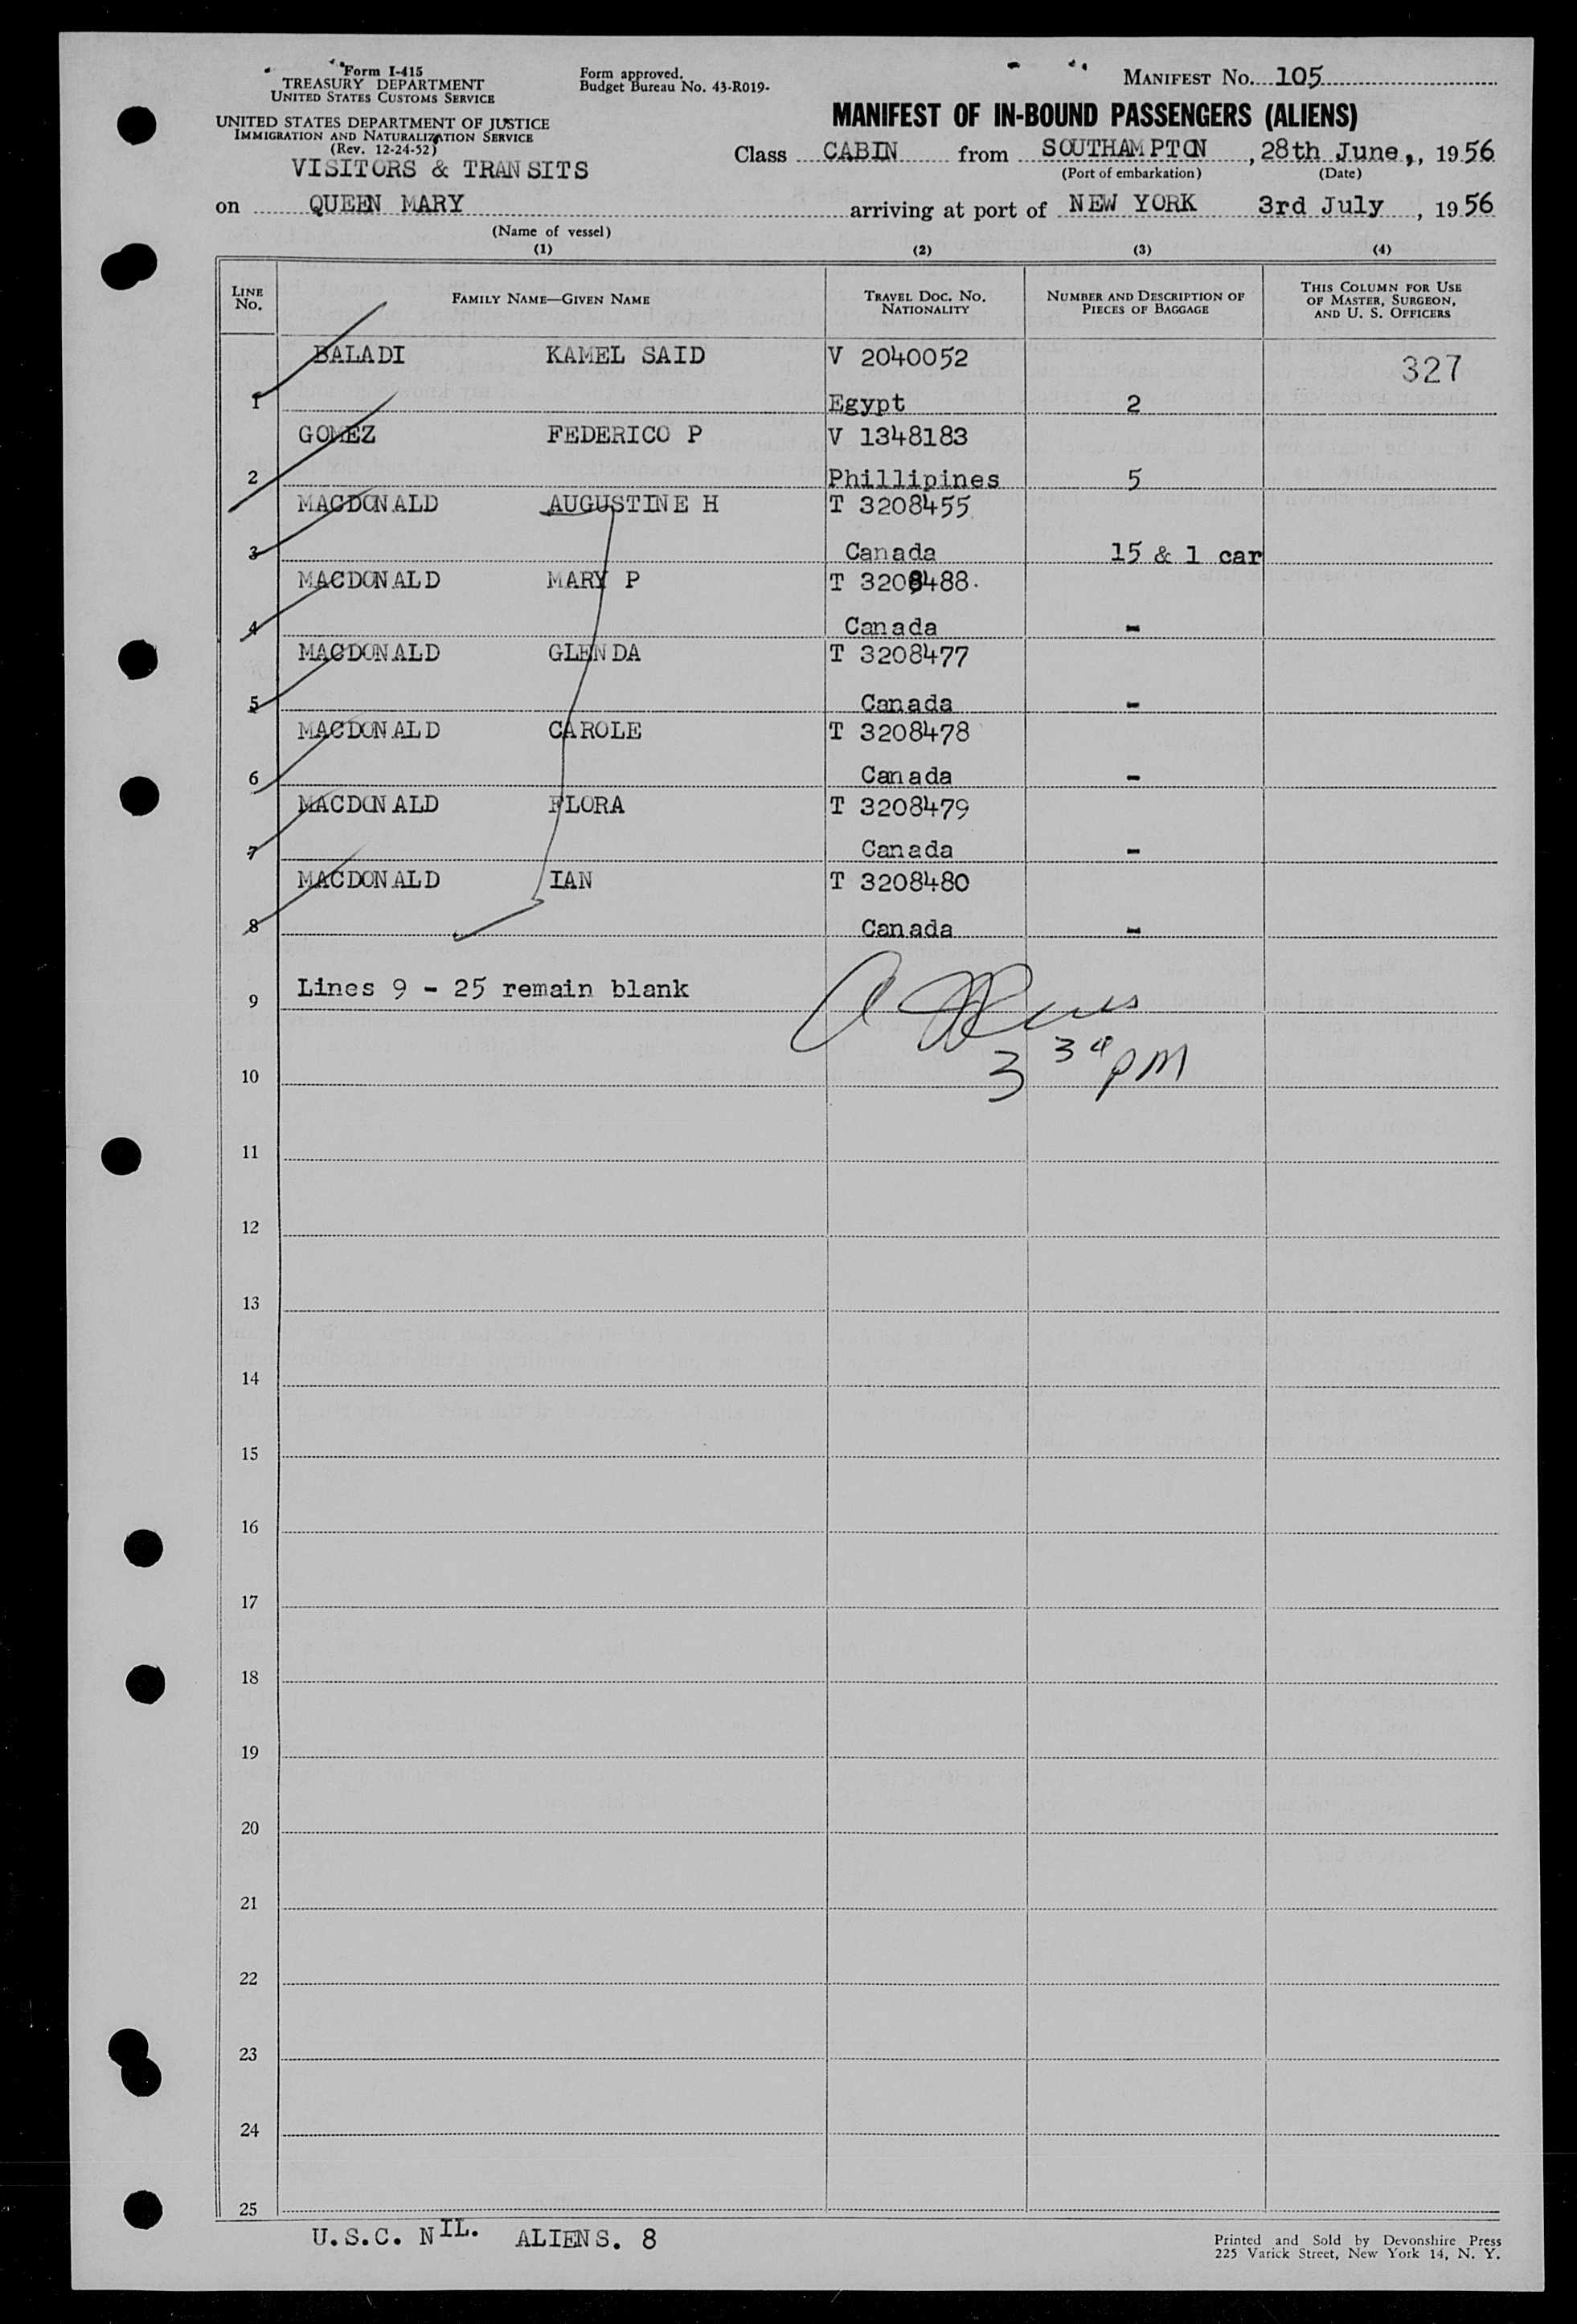 Form I-415
TREASURY DEPARTMENT
UNITED STATES CUSTOMS SERVICE
UNITED STATES DEPARTMENT OF JUSTICE
IMMIGRATION AND NATURALIZATION SERVICE
(Rev. 12-24-52)
VISITORS & TRANSITS
Form approved.
Budget Bureau No. 43-R019-
MANIFEST No. 105
MANIFEST OF IN-BOUND PASSENGERS (ALIENS)
Class CABIN from SOUTHAMPTON, 28th June,, 1956
(Port of embarkation) (Date)
on QUEEN MARY arriving at port of NEW YORK 3rd July, 1956
(Name of vessel)
(1) (2) (3) (4)
LINE No. FAMILY NAME—GIVEN NAME TRAVEL DOC. NO. NATIONALITY NUMBER AND DESCRIPTION OF PIECES OF BAGGAGE THIS COLUMN FOR USE OF MASTER, SURGEON, AND U. S. OFFICERS
BALADI KAMEL SAID V 2040052 327
1 Egypt 2
GOMEZ FEDERICO P V 1348183
2 Phillipines 5
MACDONALD AUGUSTINE H T 3208455
3 Canada 15 & 1 car
MACDONALD MARY P T 3208488.
4 Canada -
MACDONALD GLENDA T 3208477
5 Canada -
MACDONALD CAROLE T 3208478
6 Canada -
MACDONALD FLORA T 3208479
7 Canada -
MACDONALD IAN T 3208480
8 Canada -
9 Lines 9 - 25 remain blank
3 34 PM
10
11
12
13
14
15
16
17
18
19
20
21
22
23
24
25
U.S.C. NIL. ALIENS. 8
Printed and Sold by Devonshire Press
225 Varick Street, New York 14, N. Y.